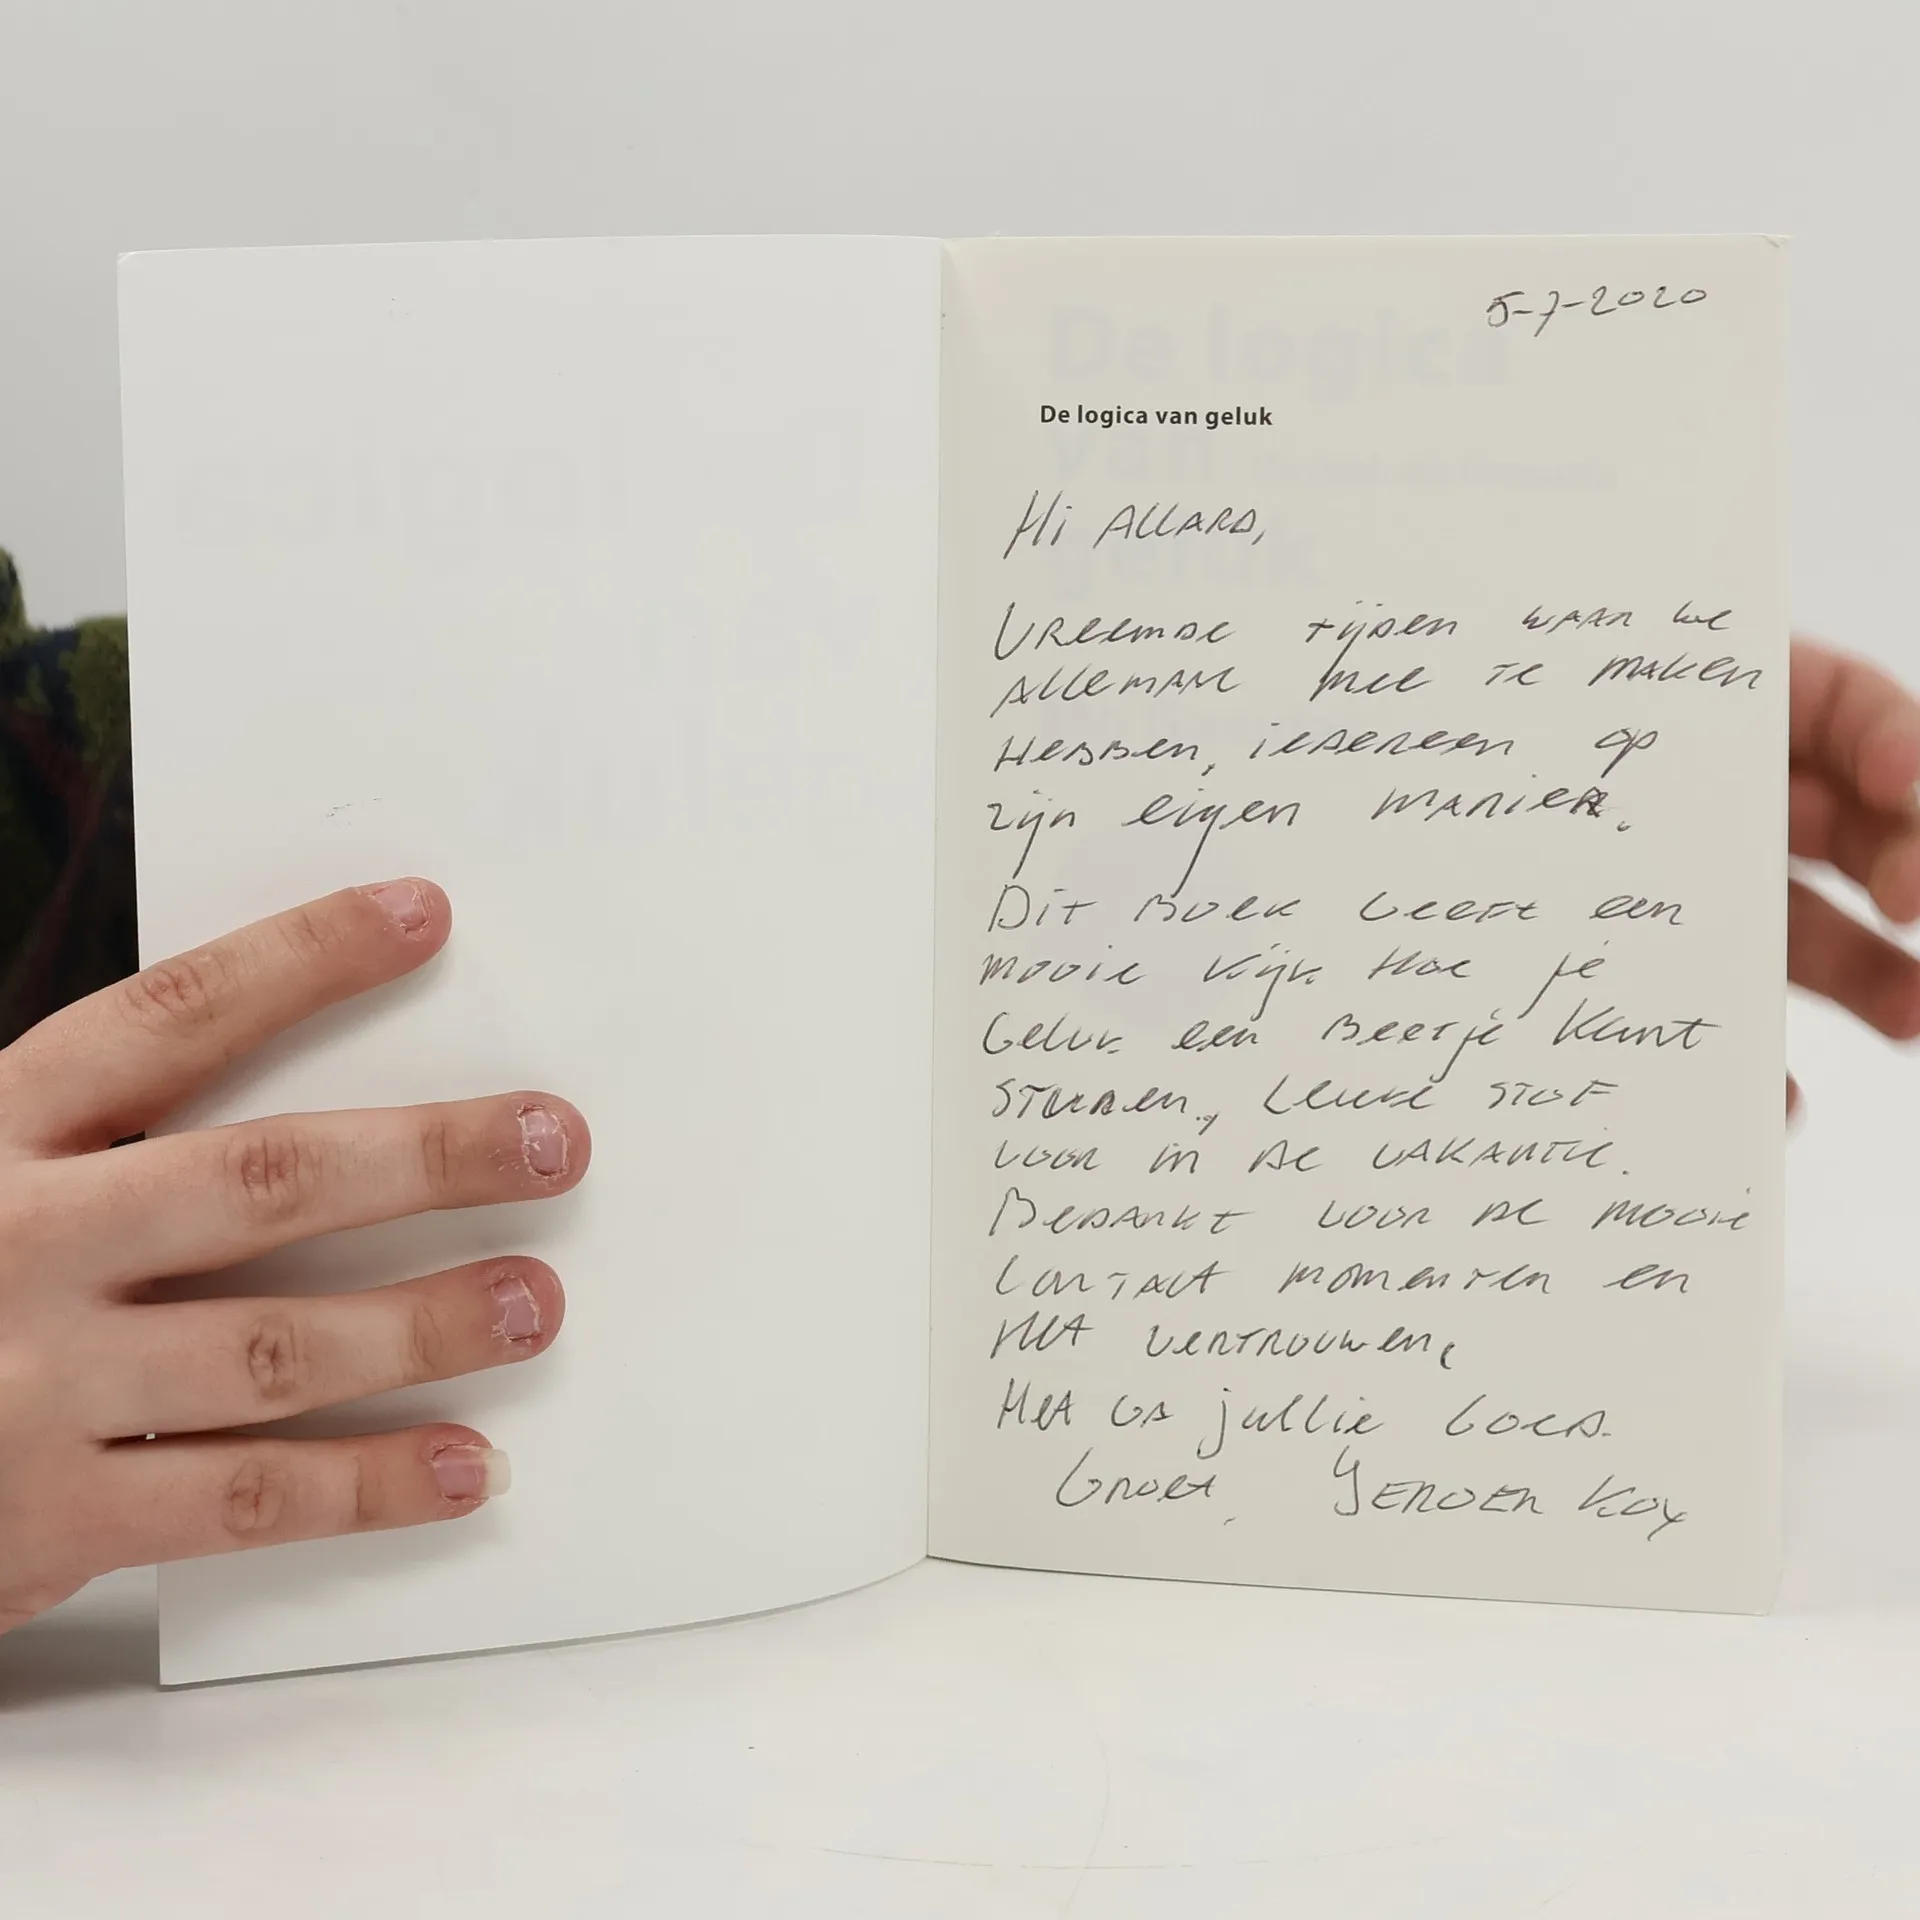 5-7-2020
De logica van geluk
Hi Allard,
Vreemde tijden waar we
allemaal mee te maken
hebben, iedereen op
zijn eigen manier.
Dit boek geeft een
mooie kijk hoe je
geluk een beetje kunt
sturen, leuke stof
voor in de vakantie.
Bedankt voor de mooie
contact momenten en
het vertrouwen.
Het ga jullie goed.
Groet, Jeroen Kox